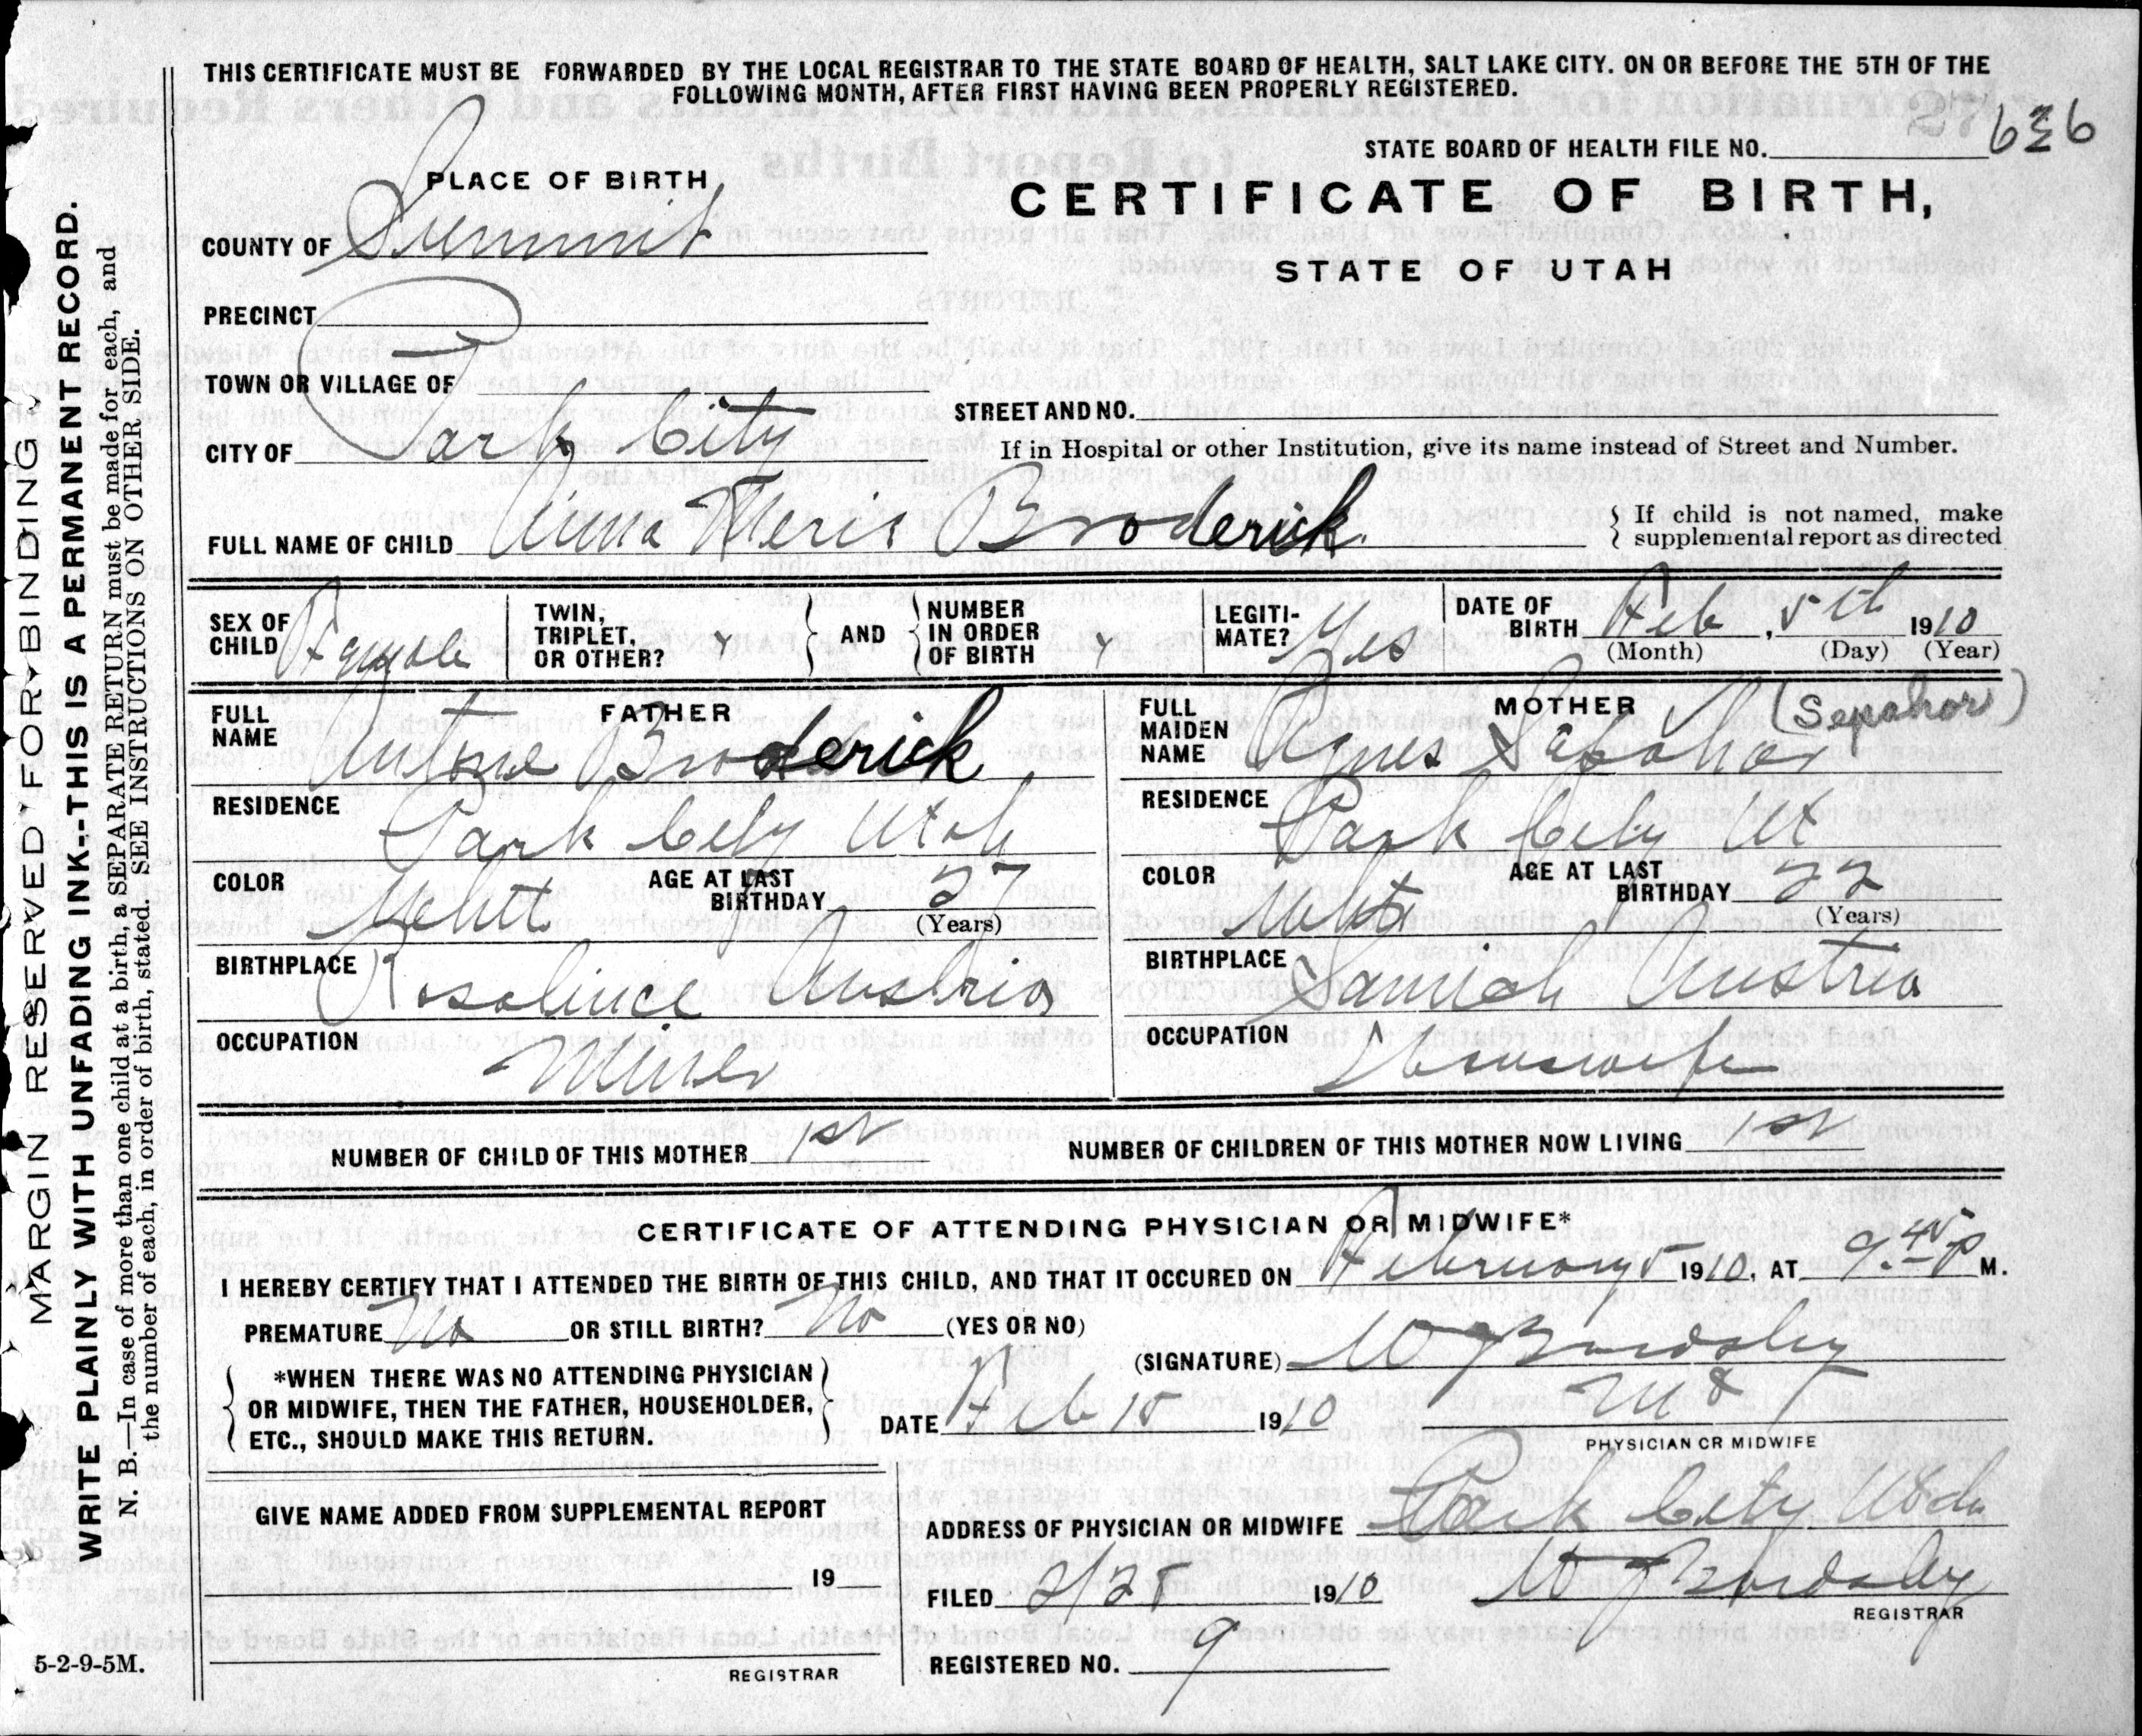 THIS CERTIFICATE MUST BE FORWARDED BY THE LOCAL REGISTRAR TO THE STATE BOARD OF HEALTH, SALT LAKE CITY. ON OR BEFORE THE 5TH OF THE
FOLLOWING MONTH, AFTER FIRST HAVING BEEN PROPERLY REGISTERED.
STATE BOARD OF HEALTH FILE NO. 636
PLACE OF BIRTH,
CERTIFICATE OF BIRTH,
COUNTY OF Summit
STATE OF UTAH
PRECINCT
TOWN OR VILLAGE OF
STREET AND NO.
CITY OF Park City
If in Hospital or other Institution, give its name instead of Street and Number.
FULL NAME OF CHILD Anna Broderick.
{ If child is not named, make
supplemental report as directed
SEX OF CHILD Female
TWIN, TRIPLET, OR OTHER?
} AND {
NUMBER IN ORDER OF BIRTH
LEGITI- MATE? Yes
DATE OF BIRTH Feb, 5th 1910
(Month) (Day) (Year)
FATHER
FULL NAME Broderick
MOTHER (Sepahor)
FULL MAIDEN NAME Agnes
RESIDENCE Park City Utah
RESIDENCE Park City Ut
COLOR White AGE AT LAST BIRTHDAY 27
(Years)
COLOR White AGE AT LAST BIRTHDAY 22
(Years)
BIRTHPLACE Austria
BIRTHPLACE Austria
OCCUPATION Miner
OCCUPATION Housewife
NUMBER OF CHILD OF THIS MOTHER 1st
NUMBER OF CHILDREN OF THIS MOTHER NOW LIVING 1st
CERTIFICATE OF ATTENDING PHYSICIAN OR MIDWIFE*
I HEREBY CERTIFY THAT I ATTENDED THE BIRTH OF THIS CHILD, AND THAT IT OCCURED ON February 5 1910, AT 9.45 P M.
PREMATURE No OR STILL BIRTH? No (YES OR NO)
*WHEN THERE WAS NO ATTENDING PHYSICIAN
OR MIDWIFE, THEN THE FATHER, HOUSEHOLDER,
ETC., SHOULD MAKE THIS RETURN.
(SIGNATURE) W J Bardsley
DATE Feb 15 1910
PHYSICIAN OR MIDWIFE
GIVE NAME ADDED FROM SUPPLEMENTAL REPORT
19
REGISTRAR
ADDRESS OF PHYSICIAN OR MIDWIFE Park City Utah
FILED 2/28 1910 W J Bardsley
REGISTRAR
REGISTERED NO. 9
5-2-9-5M.
MARGIN RESERVED FOR BINDING
WRITE PLAINLY WITH UNFADING INK--THIS IS A PERMANENT RECORD.
N. B.—In case of more than one child at a birth, a SEPARATE RETURN must be made for each, and
the number of each, in order of birth, stated. SEE INSTRUCTIONS ON OTHER SIDE.